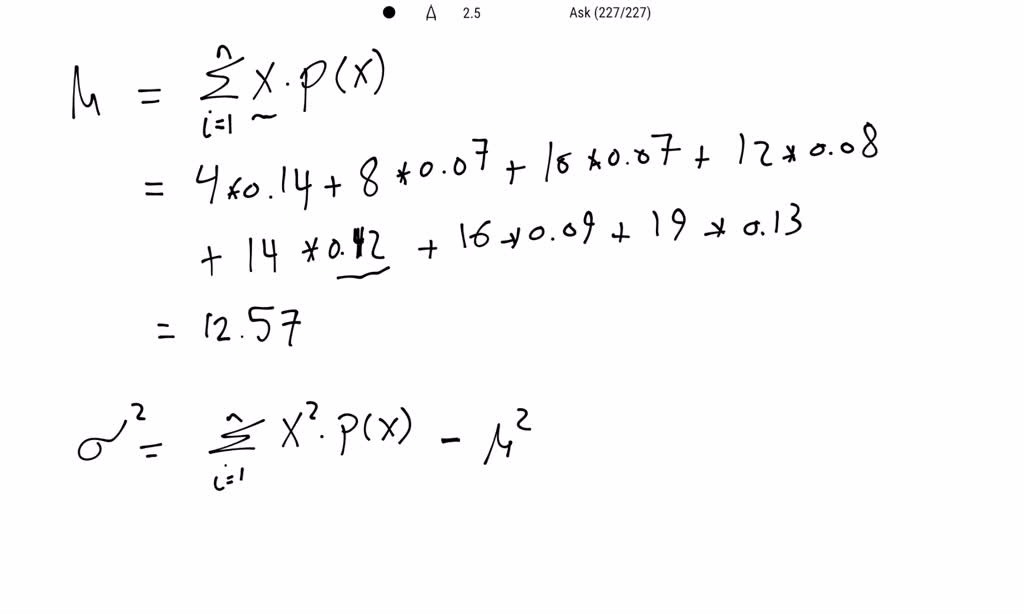 2.5 Ask (227/227)
μ = Σ x · p(x)
n
i=1
= 4*0.14 + 8*0.07 + 10*0.07 + 12*0.08
+ 14*0.42 + 16*0.09 + 19*0.13
= 12.57
σ² = Σ x² · p(x) - μ²
n
i=1